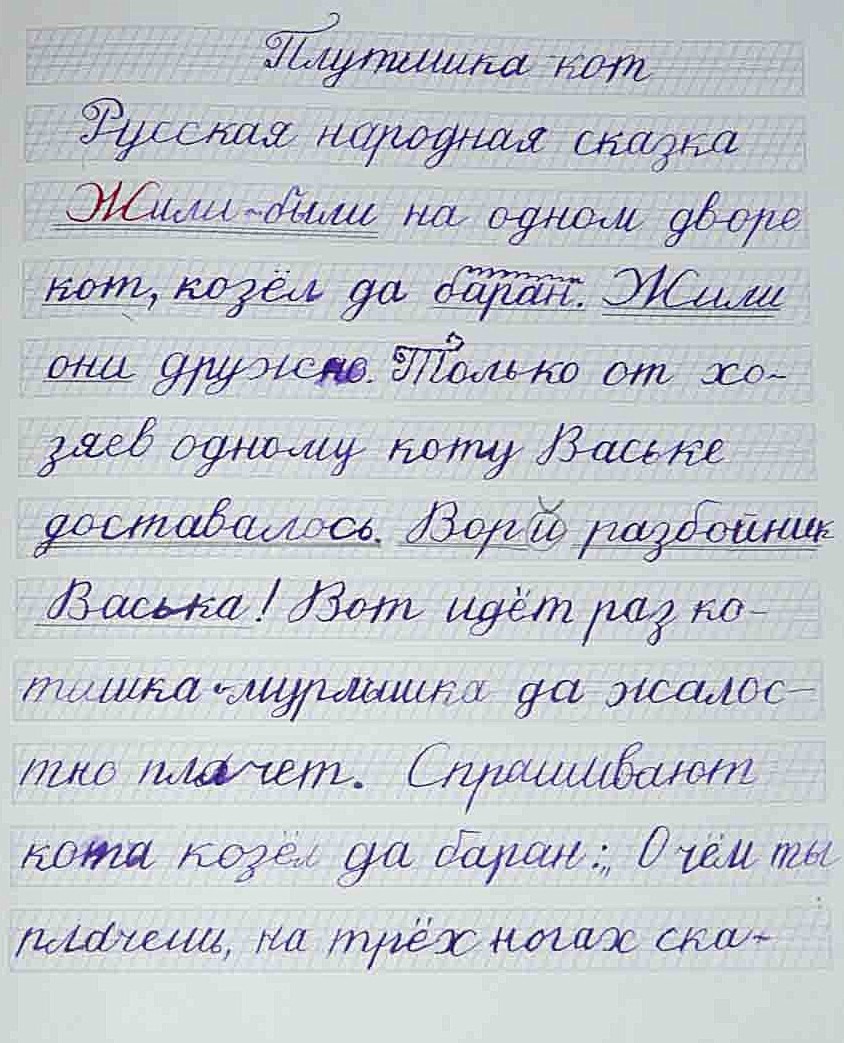 Плутишка кот
Русская народная сказка
Жили-были на одном дворе
кот, козёл да баран. Жили
они дружно. Только от хо-
зяев одному коту Ваське
доставалось. Вор й разбойник
Васька! Вот идёт раз ко-
тишка-мурлышка да жалос-
тно плачет. Спрашивают
кота козёл да баран: „О чём ты
плачешь, на трёх ногах ска-